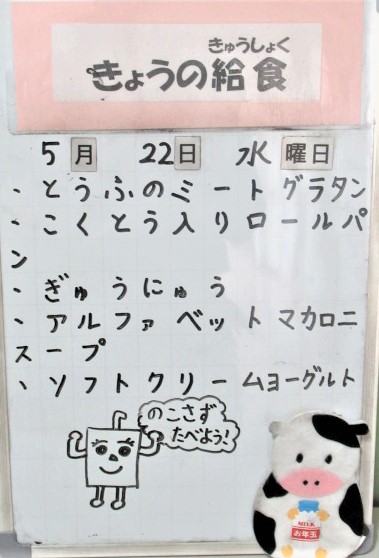 きゅうしょく
きょうの給食
5月 22日 水曜日
、とうふのミートグラタン
、こくとう入りロールパ
ン
、ぎゅうにゅう
、アルファベットマカロニ
スープ
、ソフトクリームヨーグルト
のこさず
たべよう!
MILK
お年玉